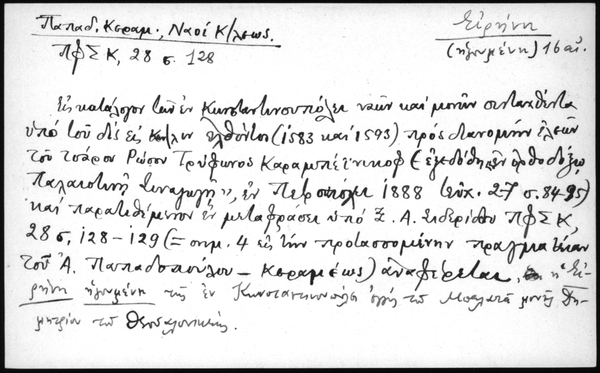 Παπαδ. Κεραμ., Ναοί Κ/λεως.
Εἰρήνη
(ἡγουμένη) 16 αἰ.
ΠΦΣΚ, 28 σ. 128
Εἰς κατάλογον τῶν ἐν Κωνσταντινουπόλει ναῶν καὶ μονῶν συνταχθέντα
ὑπὸ τοῦ δὶς εἰς Κ/λιν ἐλθόντος (1583 καὶ 1593) πρὸς διανομὴν ἐλεῶν
τοῦ τσάρου Ρώσου Τρύφωνος Καραμπέϊνικοφ (ἐξεδόθη ἐν Ὀρθοδόξῳ
Παλαιστινῇ Συναγωγῇ», ἐν Πετρουπόλει 1888 τεῦχ. 27 σ. 84-95)
καὶ παρατεθέμενον ἐν μεταφράσει ὑπὸ Ξ. Α. Σιδερίδου ΠΦΣΚ,
28 σ. 128-129 (= σημ. 4 εἰς τὴν προτασσομένην πραγματείαν
τοῦ Ἀ. Παπαδοπούλου-Κεραμέως) ἀναφέρεται ἡ Εἰ-
ρήνη ἡγουμένη τῆς ἐν Κωνσταντινουπόλει τοῦ μονῆς Δη-
μητρίου τοῦ Θεσσαλονικέως.